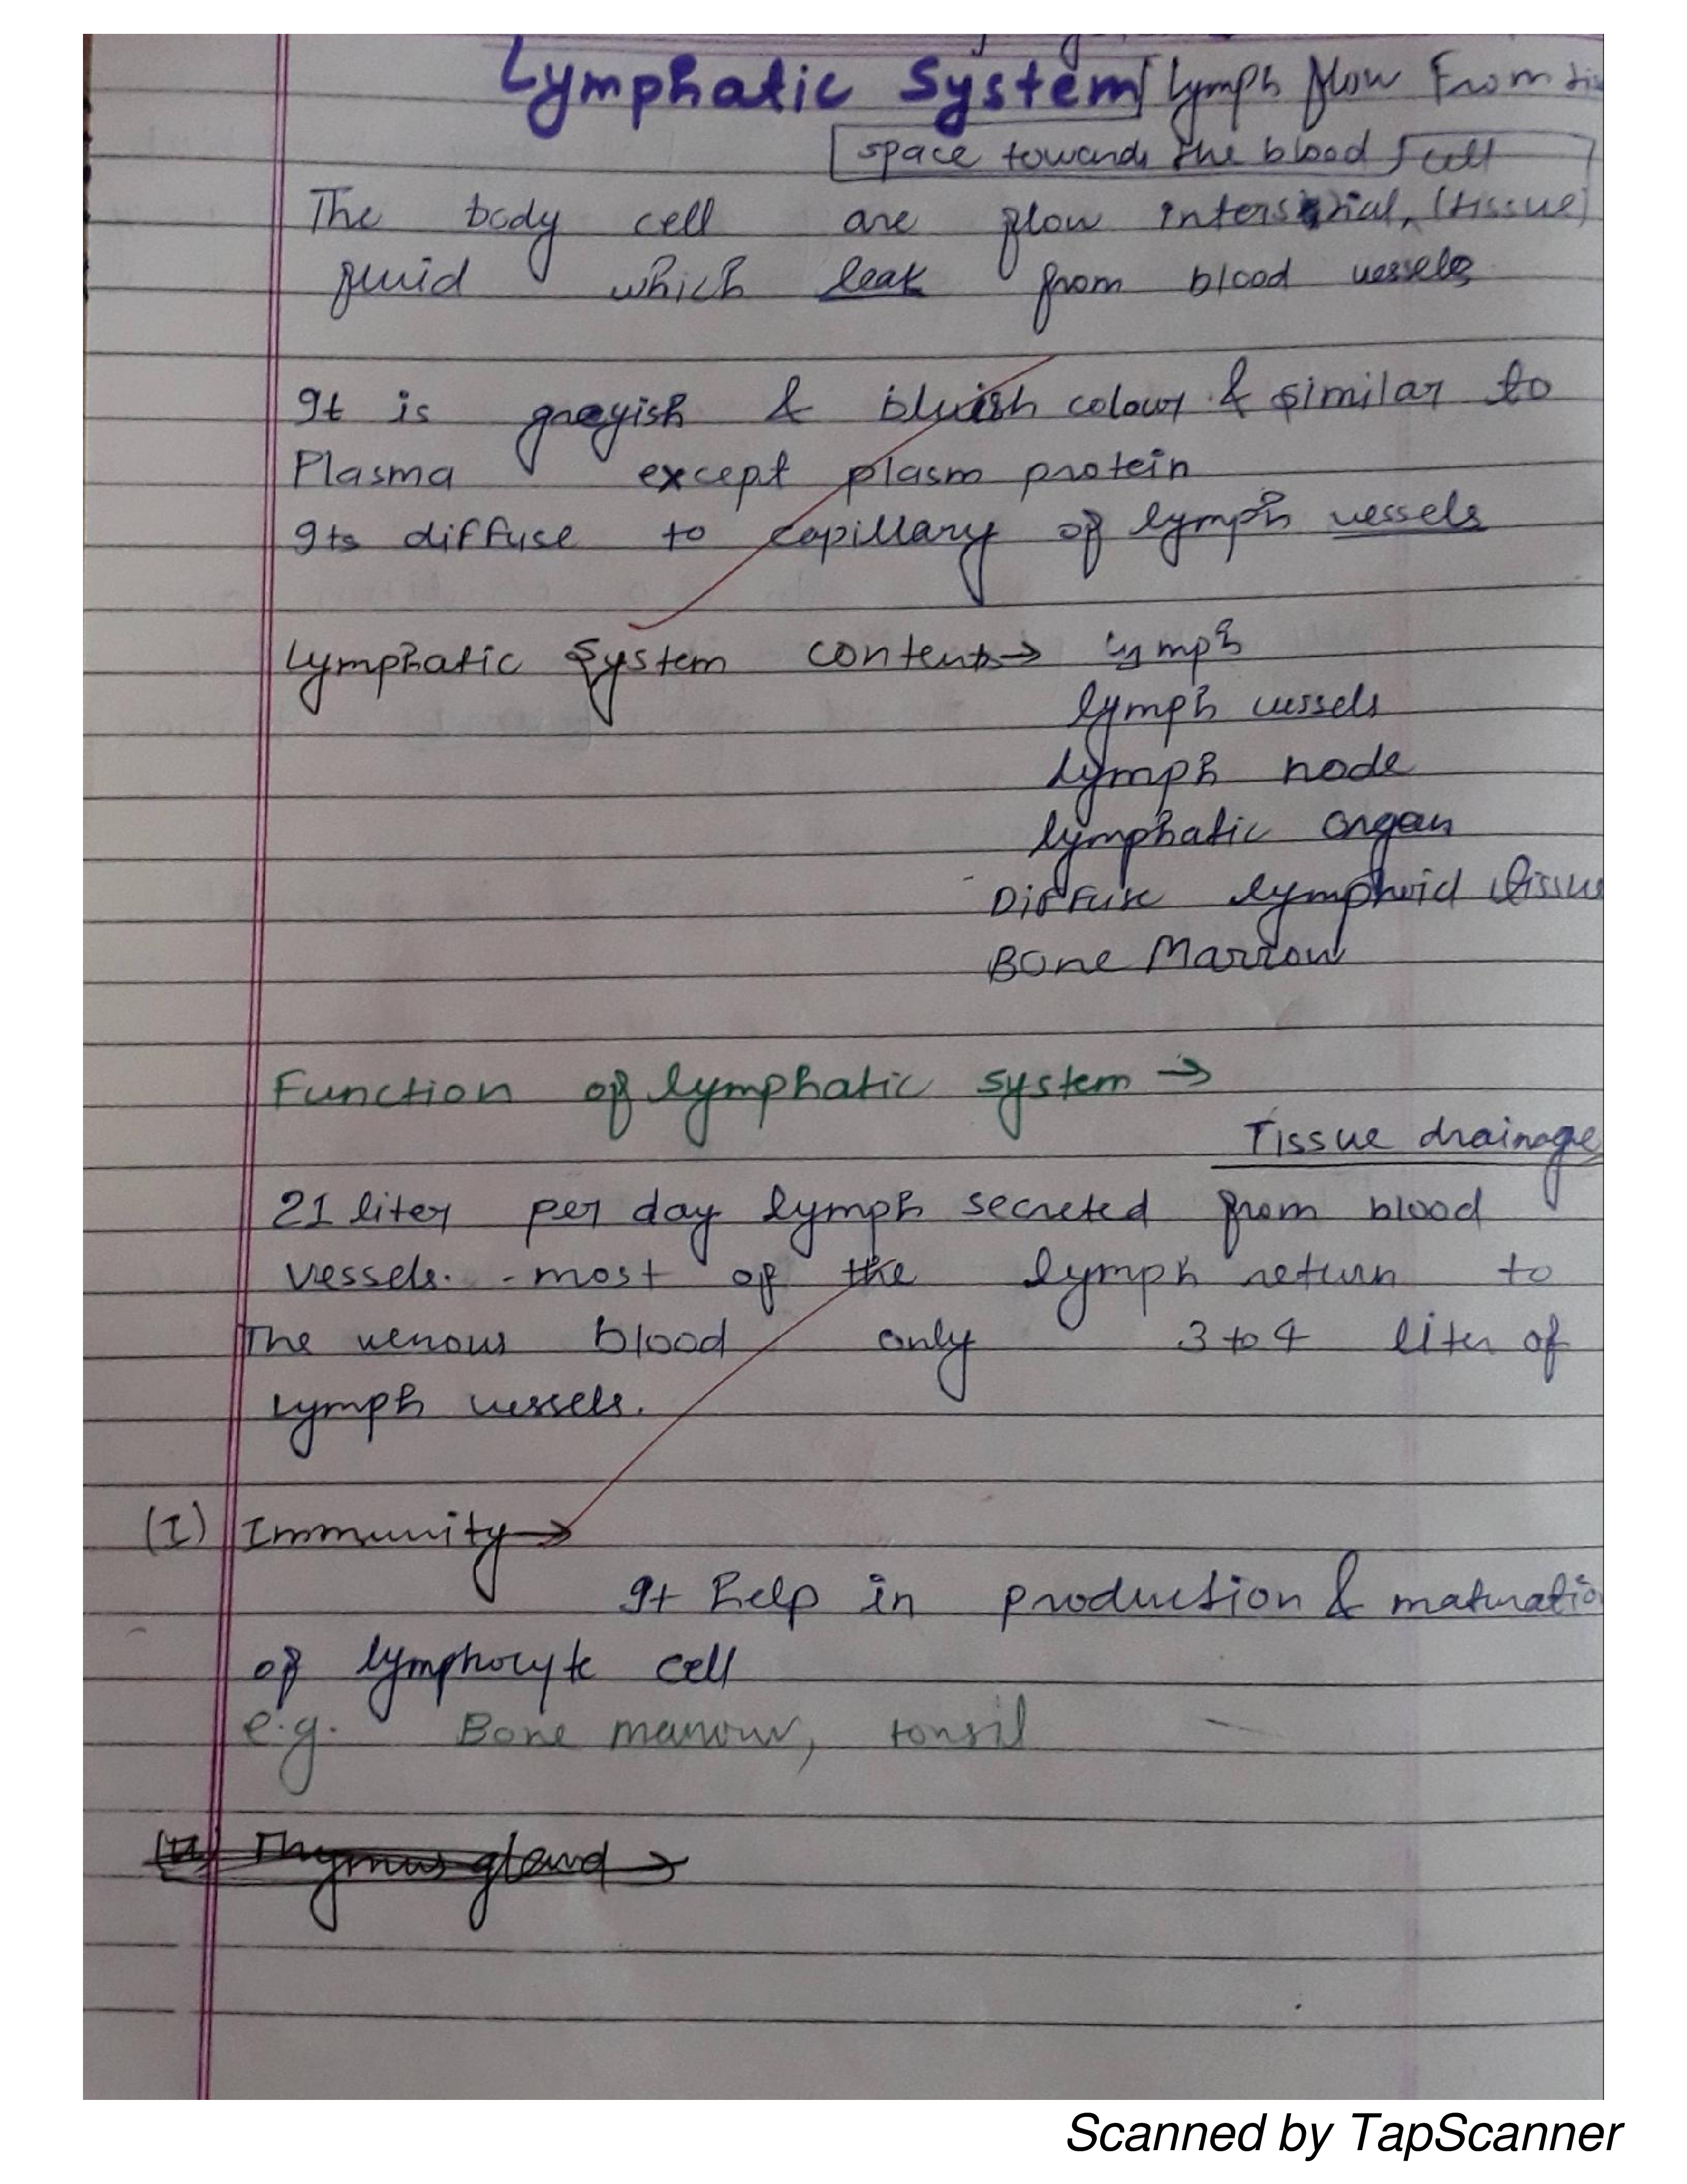 Lymphatic System lymph flow From
space towards the blood cell
The body cell are flow (tissue)
fluid which leak from blood vessels
It is greyish & bluish colour & similar to
Plasma except plasm protein
Its diffuse to capillary of lymph vessels
Lymphatic System contents→ lymph
lymph vessels
lymph node
lymphatic organ
Diffuse lymphoid tissue
Bone Marrow
Function of lymphatic system →
Tissue drainage
21 liter per day lymph secreted from blood
vessels. - most of the lymph return to
The venous blood only 3 to 4 liter of
lymph vessels.
(I) Immunity→
It help in production & maturatio
of lymphocyte cell
e.g. Bone marrow, tonsil
(II) Thymus gland →
Scanned by TapScanner